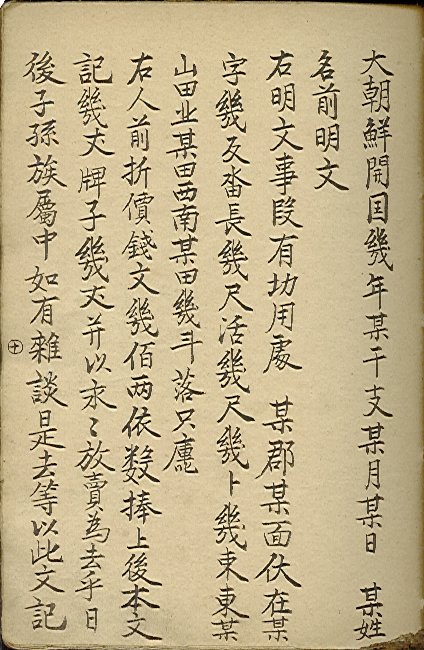 大朝鮮開囯幾年某干支某月某日 某姓
名前明文
右明文事段有切用處 某郡某面伏在某
字幾反畓長幾尺活幾尺幾卜幾東東某
山田北某田西南某田幾斗落只
右人前折價錢文幾佰两依数捧上後本文
記幾丈牌子幾丈并以永〻放賣為去乎日
後子孫族屬中如有雜談是去等以此文記
㊉